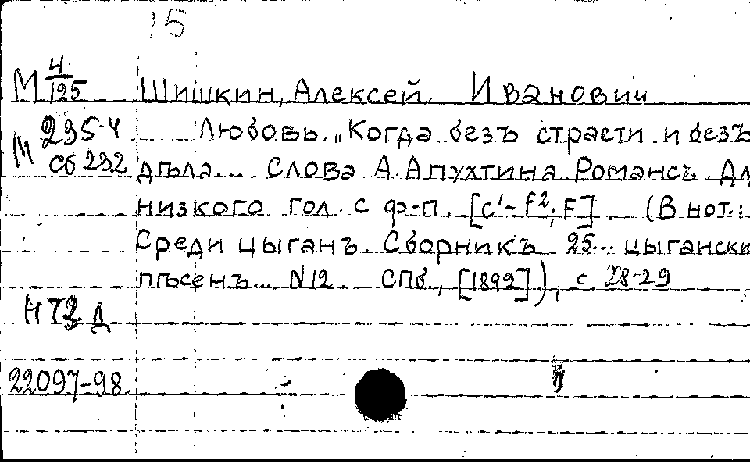 15
М 4/125 Шишкин, Алексей Иванович
М 235-4 Любовь. „Когда безъ страсти и безъ
сб 232 дѣла... Слова А. Апухтина. Романсъ. Дл
низкого гол. с ф-п. [c¹-f²; F] (В нот.:
Среди цыганъ. Сборникъ 25... цыгански
пѣсенъ... N12. СПб, [1892]), с 28-29
Н 73 д
22097-98